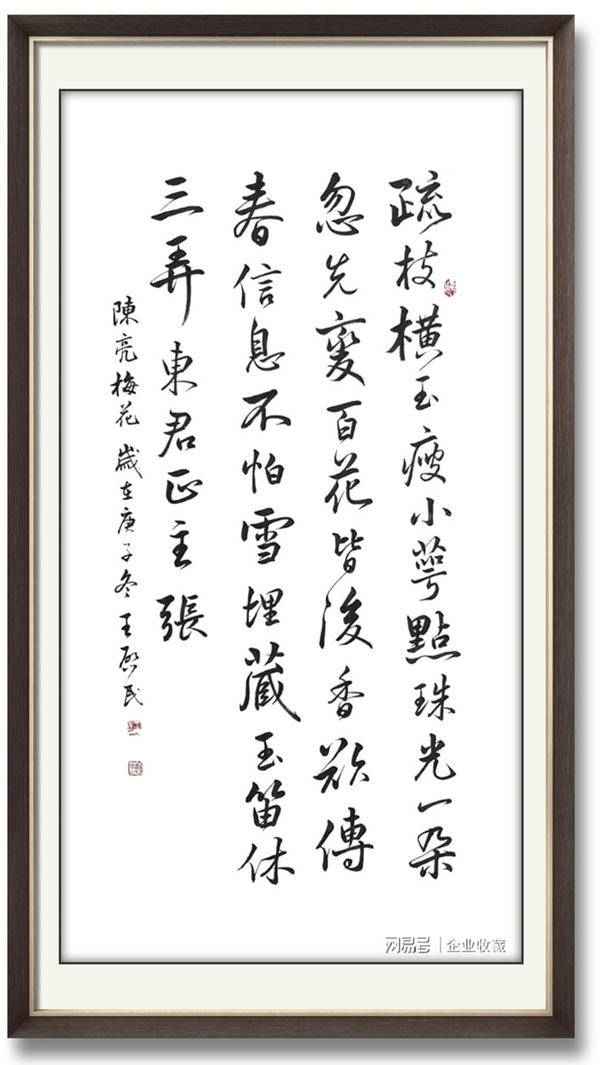 疏枝横玉瘦小萼點珠光一朶
忽先變百花皆後香欲傳
春信息不怕雪埋藏玉笛休
三弄東君正主張
陳亮梅花 歲在庚子冬 王啟民
网易号 | 企业收藏